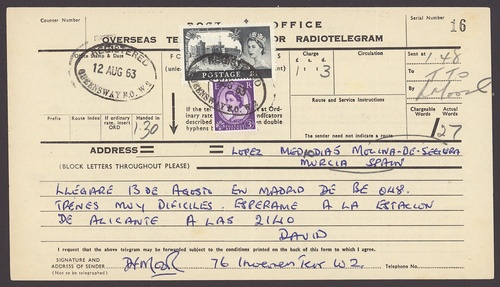 Counter Number
POST OFFICE
Serial Number
16
OVERSEAS TE OR RADIOTELEGRAM
Office Stamp & Date
REGISTERED
12 AUG 63
QUEENSWAY B.O. W.2
POSTAGE
REGISTERED
QUEENSWAY B.O. W.2
£
Circulation
1 3
Sent at
1.48
To
TTO
By
Chargeable Words
Actual Words
/27
Prefix
Route Index
If ordinary rate, insert ORD
Handed in
1.30
If the te at Ord-
inary rate
described
hyphens t
Route and Service Instructions
The sender need not indicate a route
ADDRESS = = LOPEZ MEDIODIAS MOLINA-DE-SEGURA
(BLOCK LETTERS THROUGHOUT PLEASE) MURCIA SPAIN
LLEGARE 13 DE AGOSTO EN MADRID DE BE 048.
TRENES MUY DIFICILES. ESPERAME A LA ESTACION
DE ALICANTE A LAS 2140
DAVID
I request that the above telegram may be forwarded subject to the conditions printed on the back of this form to which I agree.
SIGNATURE AND ADDRESS OF SENDER
(Not to be telegraphed)
76 W2.
Telephone No.